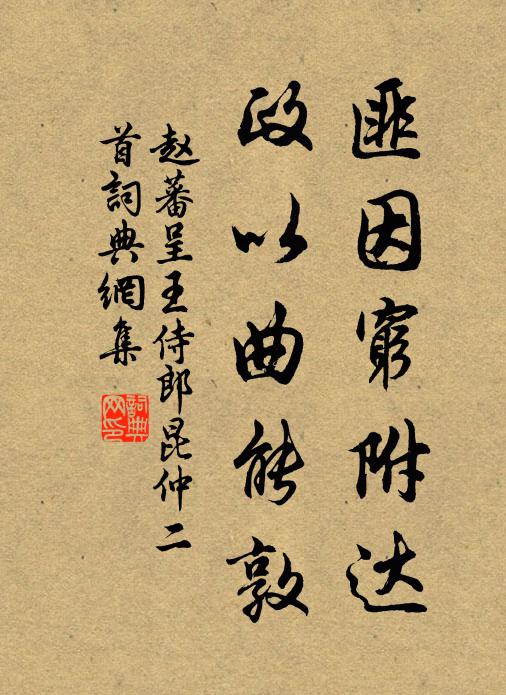 匪因窮附达
政以曲能敦
赵蕃呈王侍郎昆仲二
首詞典網集
詞典网印